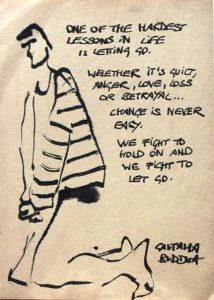 ONE OF THE HARDEST
LESSONS IN LIFE
IS LETTING GO.
WHETHER IT'S GUILT,
ANGER, LOVE, LOSS
OR BETRAYAL...
CHANGE IS NEVER
EASY.
WE FIGHT TO
HOLD ON AND
WE FIGHT TO
LET GO.
GAUTAMA
BUDDHA